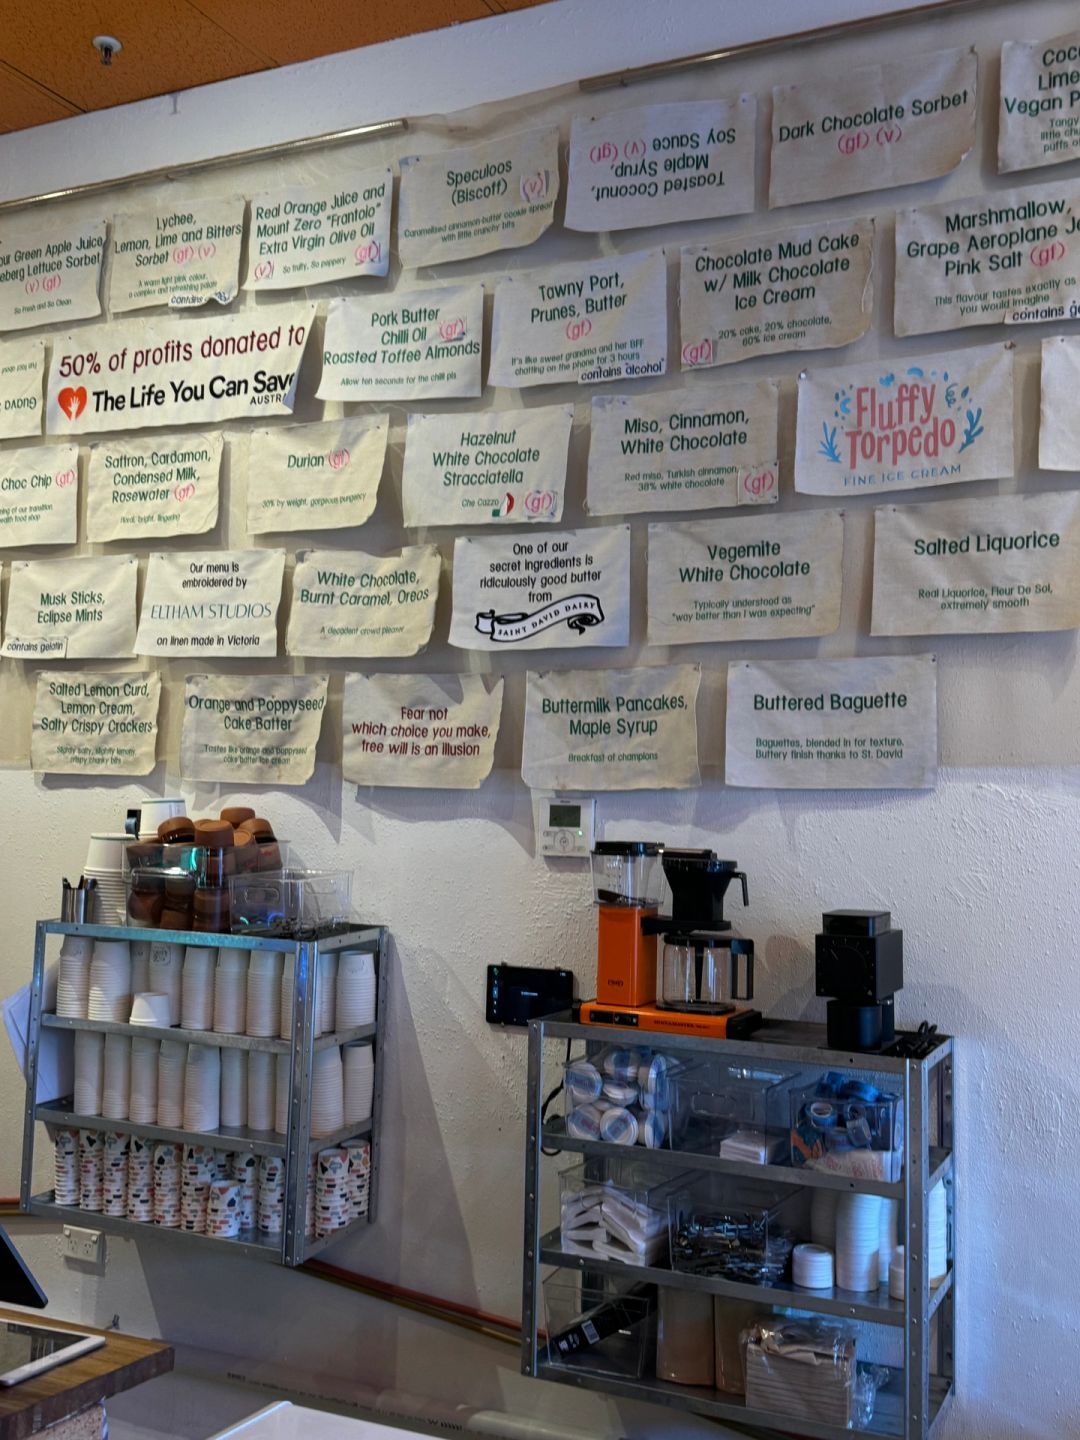 Dark Chocolate Sorbet
(gf) (v)
Lime
Vegan
Toasted Coconut,
Maple Syrup,
Soy Sauce
(v) (gf)
Speculoos
(Biscoff) (v)
Caramelised cinnamon-butter cookie spread
with little crunchy bits
Real Orange Juice and
Mount Zero "Frantoio"
Extra Virgin Olive Oil
(v) So fruity, So peppery (gf)
Lychee,
Lemon, Lime and Bitters
Sorbet (gf) (v)
A warm light pink colour,
a complex and refreshing palate
contains
Green Apple Juice
Lettuce Sorbet
(v) (gf)
So Fresh and So Clean
Marshmallow,
Grape Aeroplane
Pink Salt (gf)
This flavour tastes exactly as
you would imagine
contains
Chocolate Mud Cake
w/ Milk Chocolate
Ice Cream
20% cake, 20% chocolate,
60% ice cream
(gf)
Tawny Port,
Prunes, Butter
(gf)
It's like sweet grandma and her BFF
chatting on the phone for 3 hours
contains alcohol
Pork Butter
Chilli Oil (gf)
Roasted Toffee Almonds
Allow ten seconds for the chilli pls
50% of profits donated to
The Life You Can Save
Fluffy
Torpedo
FINE ICE CREAM
Miso, Cinnamon,
White Chocolate
Red miso, Turkish cinnamon,
38% white chocolate (gf)
Hazelnut
White Chocolate
Stracciatella
Che Cazzo (gf)
Durian (gf)
30% by weight, gorgeous pungency
Saffron, Cardamon,
Condensed Milk,
Rosewater (gf)
floral, bright, lingering
Choc Chip (gf)
of our transition
health food shop
Salted Liquorice
Real Liquorice, Fleur De Sol,
extremely smooth
Vegemite
White Chocolate
Typically understood as
"way better than I was expecting"
One of our
secret ingredients is
ridiculously good butter
from
SAINT DAVID DAIRY
White Chocolate,
Burnt Caramel, Oreos
A decadent crowd pleaser
Our menu is
embroidered by
ELTHAM STUDIOS
on linen made in Victoria
Musk Sticks,
Eclipse Mints
contains gelatin
Salted Lemon Curd,
Lemon Cream,
Salty Crispy Crackers
Slightly salty, slightly lemony,
crispy chunky bits
Orange and Poppyseed
Cake Batter
Tastes like orange and poppyseed
cake batter ice cream
Fear not
which choice you make,
free will is an illusion
Buttermilk Pancakes,
Maple Syrup
Breakfast of champions
Buttered Baguette
Baguettes, blended in for texture.
Buttery finish thanks to St. David